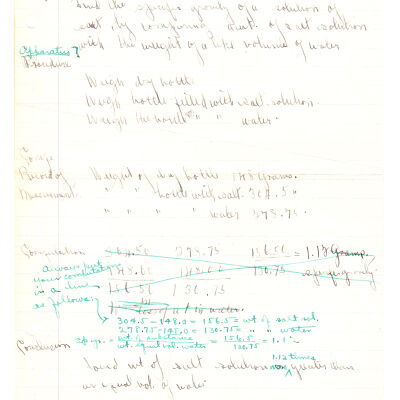 Find the specific gravity of a solution of
salt, by comparing a vol. of salt solution
with the weight of a like volume of water
Apparatus?
Procedure
Weigh dry bottle.
Weigh bottle filled with salt solution.
Weigh the bottle " " water.
Record of Weight of dry bottle 148 Grams.
Measurement. " " bottle with salt 304.5 "
" " " " water 278.75 "
Computation 304.50 278.75 156.50 = 1.18 Grams
148.00 148.00 130.75 specific gravity
156.50 130.75
Always put
your computations
in a line
as follows:
of water.
304.5 - 148.0 = 156.5 = wt of salt sol.
278.75 - 148.0 = 130.75 = " " water
Sp. g. = wt of substance / wt. equal vol. water = 156.5 / 130.75 = 1.1
Conclusion
1.12 times
Found wt of salt solution was greater than
an equal vol. of water